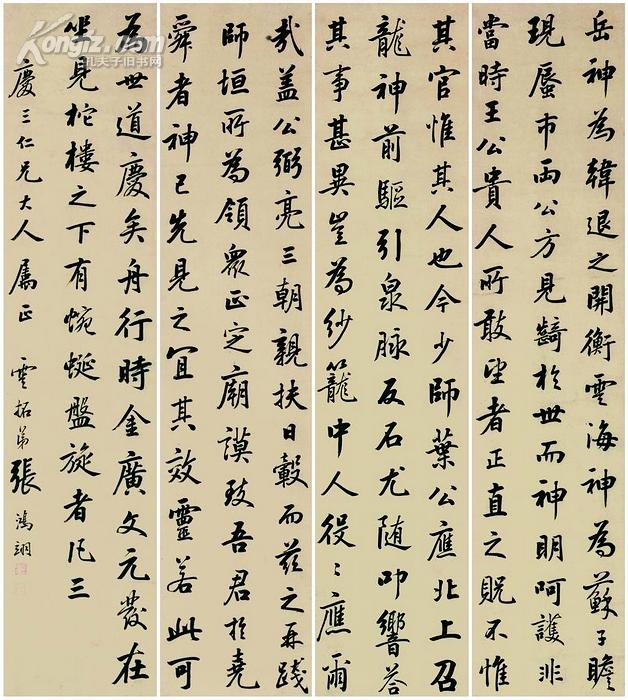 岳神為韓退之開衡雲海神為蘇子瞻
現蜃市兩公方見齮於世而神明呵護非
當時王公貴人所敢望者正直之貺不惟
其官惟其人也今少師葉公應北上召
龍神前驅引泉脉反石尤随叩響荅
其事甚異豈為紗籠中人役〻應爾
哉蓋公弼亮三朝親扶日轂而兹之再踐
師垣所為領衆正定廟謨致吾君於堯
舜者神已先見之宜其效靈若此可
為世道慶矣舟行時金廣文元發在
坐見柁樓之下有蜿蜒盤旋者凡三
慶三仁兄大人属正 雲拓弟張鴻翊
孔夫子旧书网